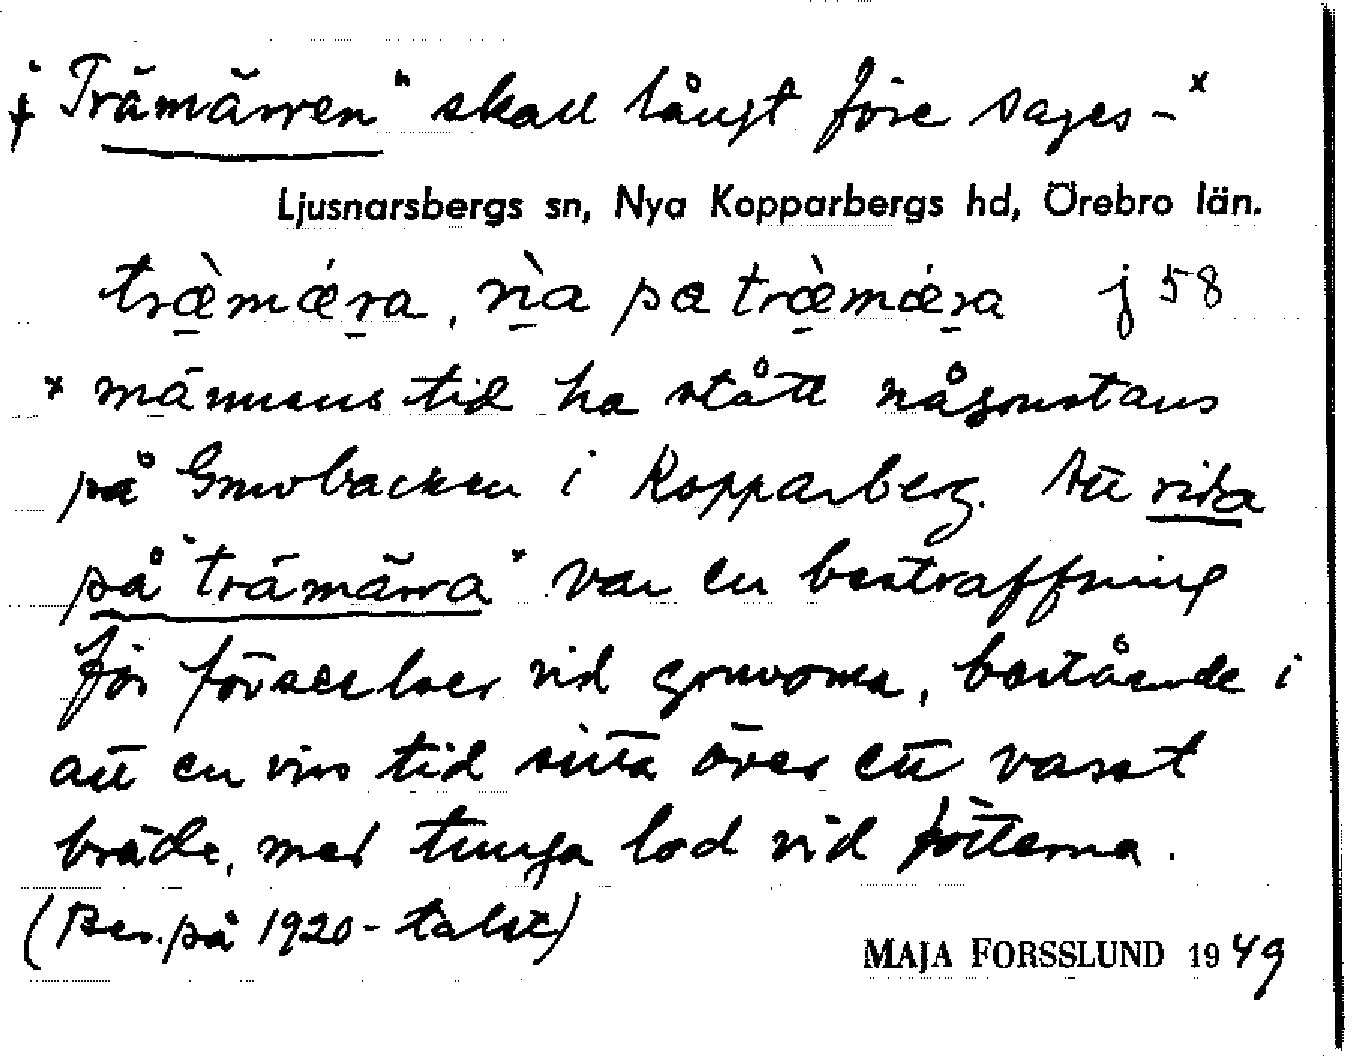 j "Trämärren" skall långt före sages-x
Ljusnarsbergs sn, Nya Kopparbergs hd, Örebro län.
træ̀mǽra, rìa pa træ̀mǽra j 58
x männens tid ha stått någonstans
på Gruvbacken i Kopparberg. Att rida
på "trämärra" var en bestraffning
för förseelser vid gruvorna, bestående i
att en viss tid sitta över ett vasst
bräde, med tunga lod vid fötterna.
(Bes. på 1920-talet)
MAJA FORSSLUND 1949